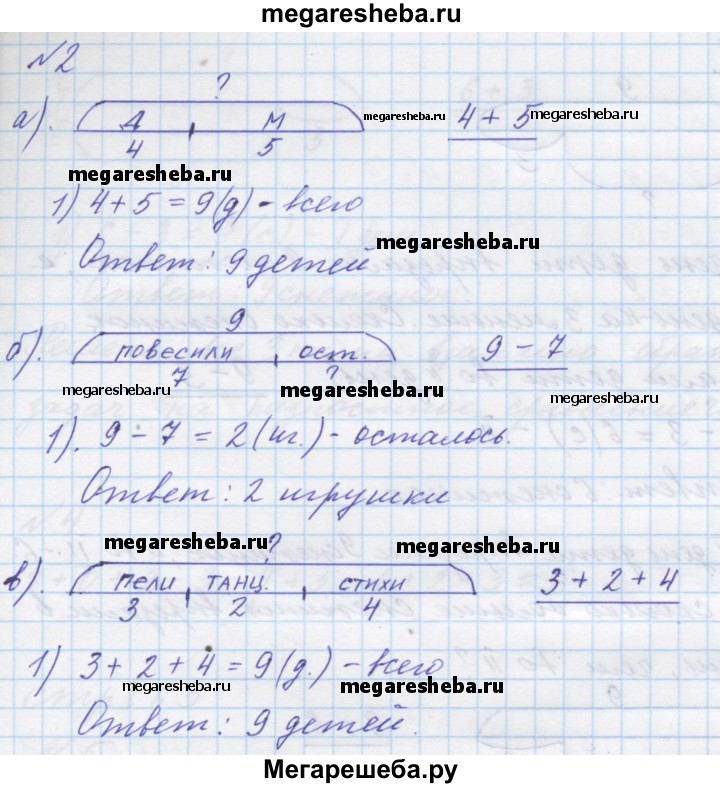 megaresheba.ru
№2
?
а). Д М megaresheba.ru 4 + 5 megaresheba.ru
4 5
megaresheba.ru
1) 4 + 5 = 9 (д) - всего
Ответ: 9 детей megaresheba.ru
9
б). повесили ост. 9 - 7
7 ?
megaresheba.ru megaresheba.ru megaresheba.ru
1). 9 - 7 = 2 (иг.) - осталось.
Ответ: 2 игрушки
?
megaresheba.ru megaresheba.ru
в). пели танц. стихи 3 + 2 + 4
3 2 4
1) 3 + 2 + 4 = 9 (д.) - всего
megaresheba.ru megaresheba.ru
Ответ: 9 детей.
Мегарешеба.ру